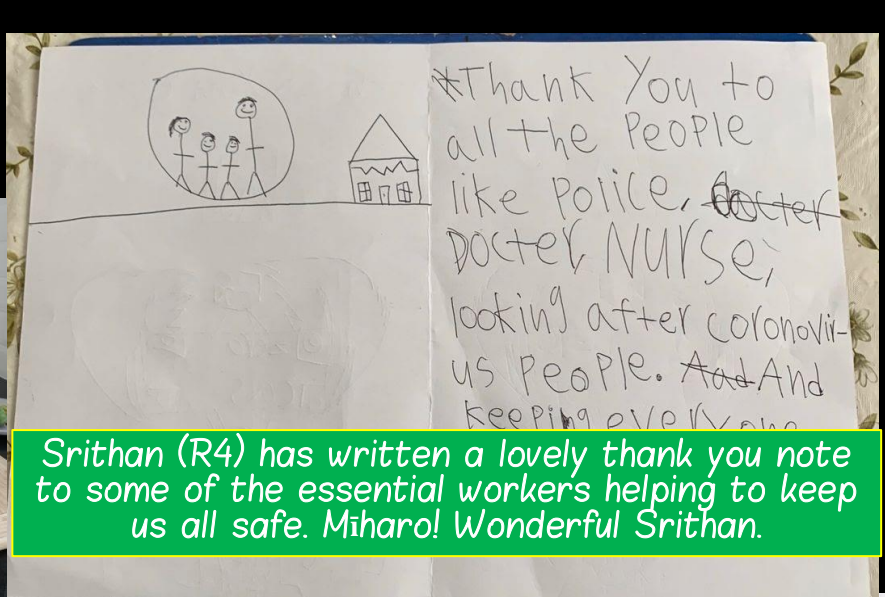 *Thank You to
all the People
like Police, docter
Docter, Nurse,
looking after coronovir-
us People. Aad And
keeping everyone
Srithan (R4) has written a lovely thank you note
to some of the essential workers helping to keep
us all safe. Mīharo! Wonderful Srithan.